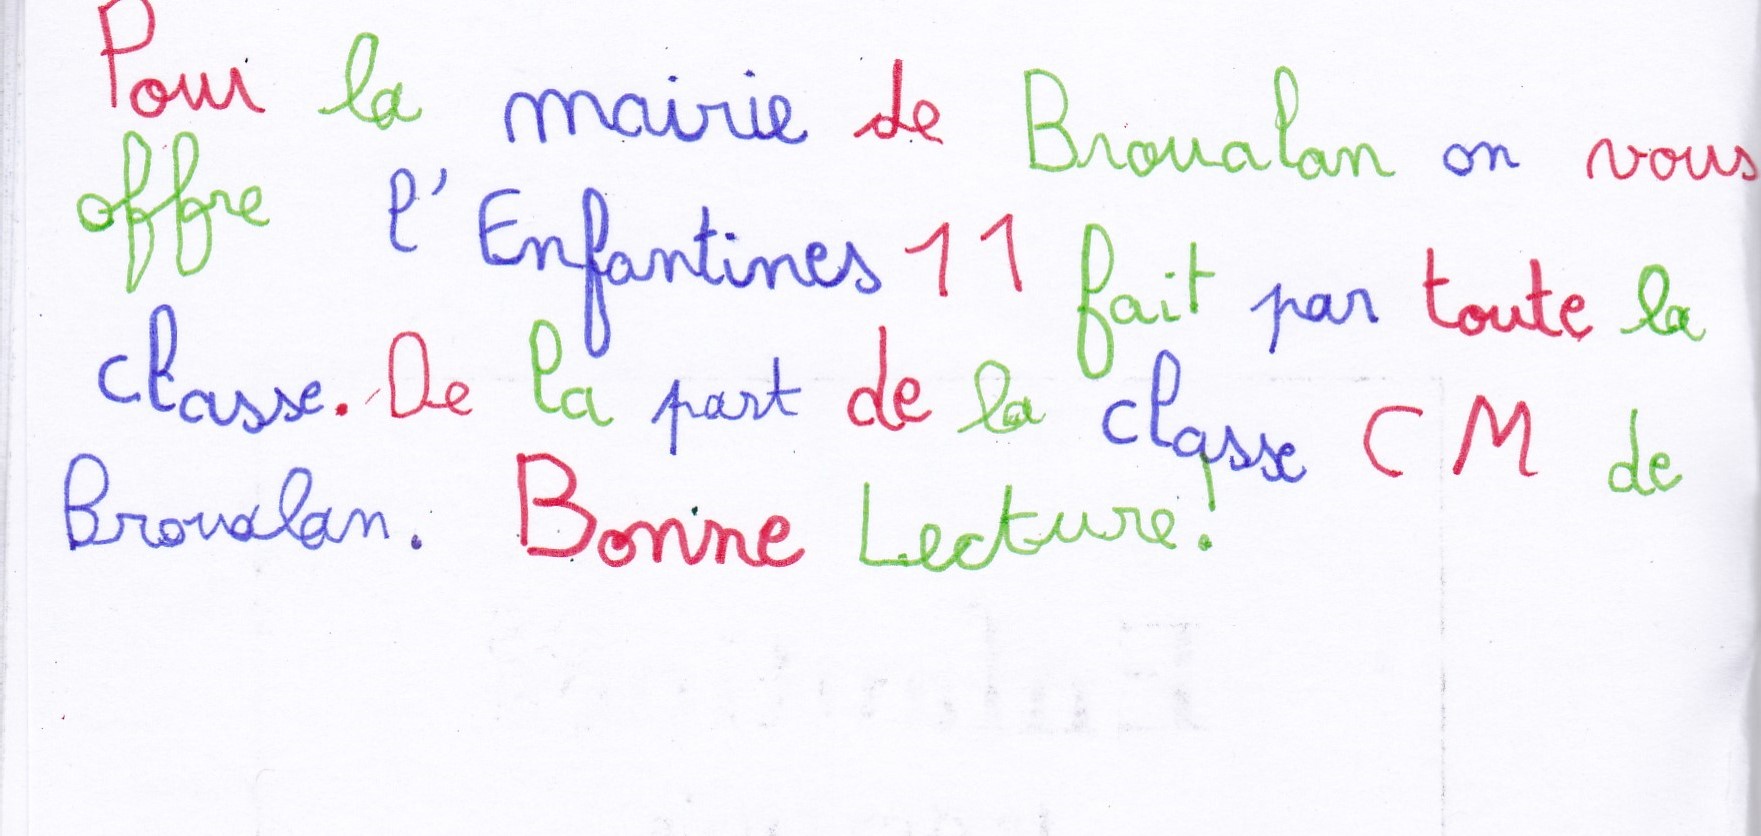 Pour la mairie de Broualan on vous
offre l'Enfantines 11 fait par toute la
classe. De la part de la classe CM de
Broualan. Bonne Lecture!